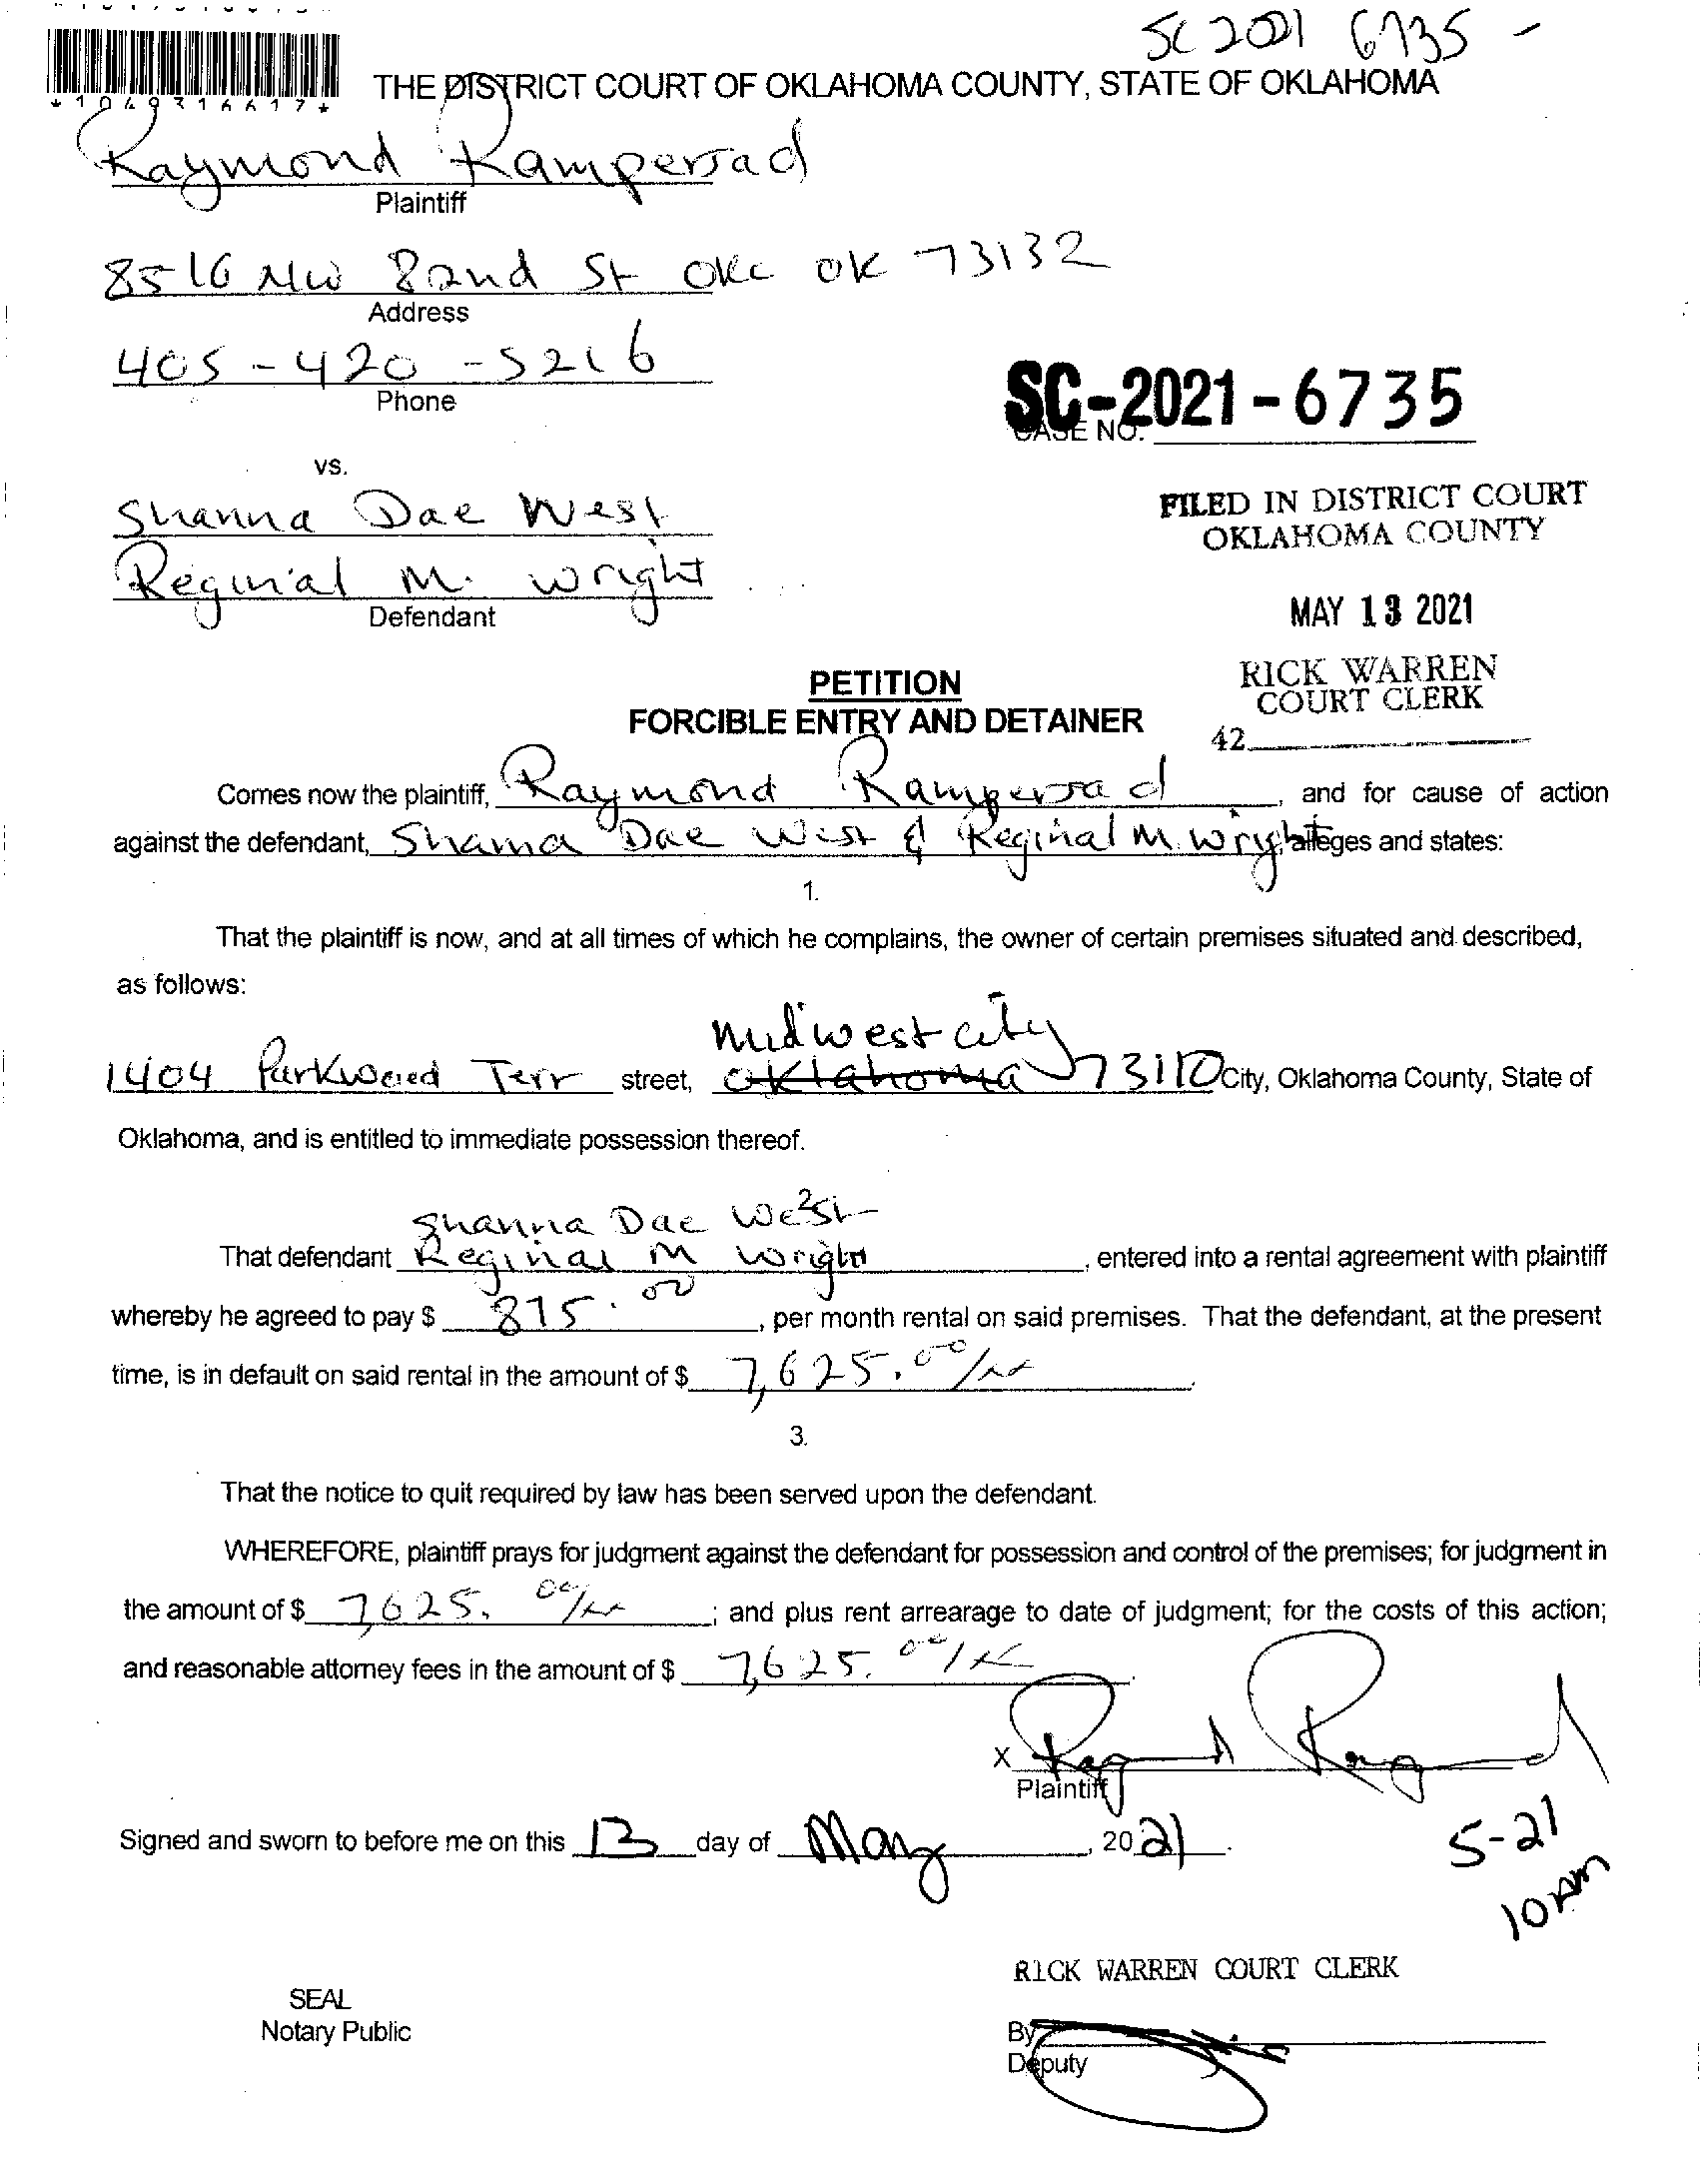 SC 2021 6735 -
*1049316617*
THE DISTRICT COURT OF OKLAHOMA COUNTY, STATE OF OKLAHOMA
Raymond Rampersad
Plaintiff
8516 NW 82nd St OKC OK 73132
Address
405-420-5216
Phone
SC-2021-6735
CASE NO.
vs.
Shanna Dae West
Reginal M. Wright
Defendant
FILED IN DISTRICT COURT
OKLAHOMA COUNTY
MAY 13 2021
RICK WARREN
COURT CLERK
42
PETITION
FORCIBLE ENTRY AND DETAINER
Comes now the plaintiff, Raymond Rampersad, and for cause of action
against the defendant, Shanna Dae West & Reginal M. Wright alleges and states:
1.
That the plaintiff is now, and at all times of which he complains, the owner of certain premises situated and described,
as follows:
Midwest city
1404 Parkwood Terr street, Oklahoma 73110 City, Oklahoma County, State of
Oklahoma, and is entitled to immediate possession thereof.
2.
Shanna Dae West
That defendant Reginal M Wright, entered into a rental agreement with plaintiff
whereby he agreed to pay $ 875.00, per month rental on said premises. That the defendant, at the present
time, is in default on said rental in the amount of $ 7,625.00/xx.
3.
That the notice to quit required by law has been served upon the defendant.
WHEREFORE, plaintiff prays for judgment against the defendant for possession and control of the premises; for judgment in
the amount of $ 7,625.00/xx; and plus rent arrearage to date of judgment; for the costs of this action;
and reasonable attorney fees in the amount of $ 7,625.00/xx.
X
Plaintiff
Signed and sworn to before me on this 13 day of May, 2021.
5-21
10 AM
RICK WARREN COURT CLERK
SEAL
Notary Public
By
Deputy